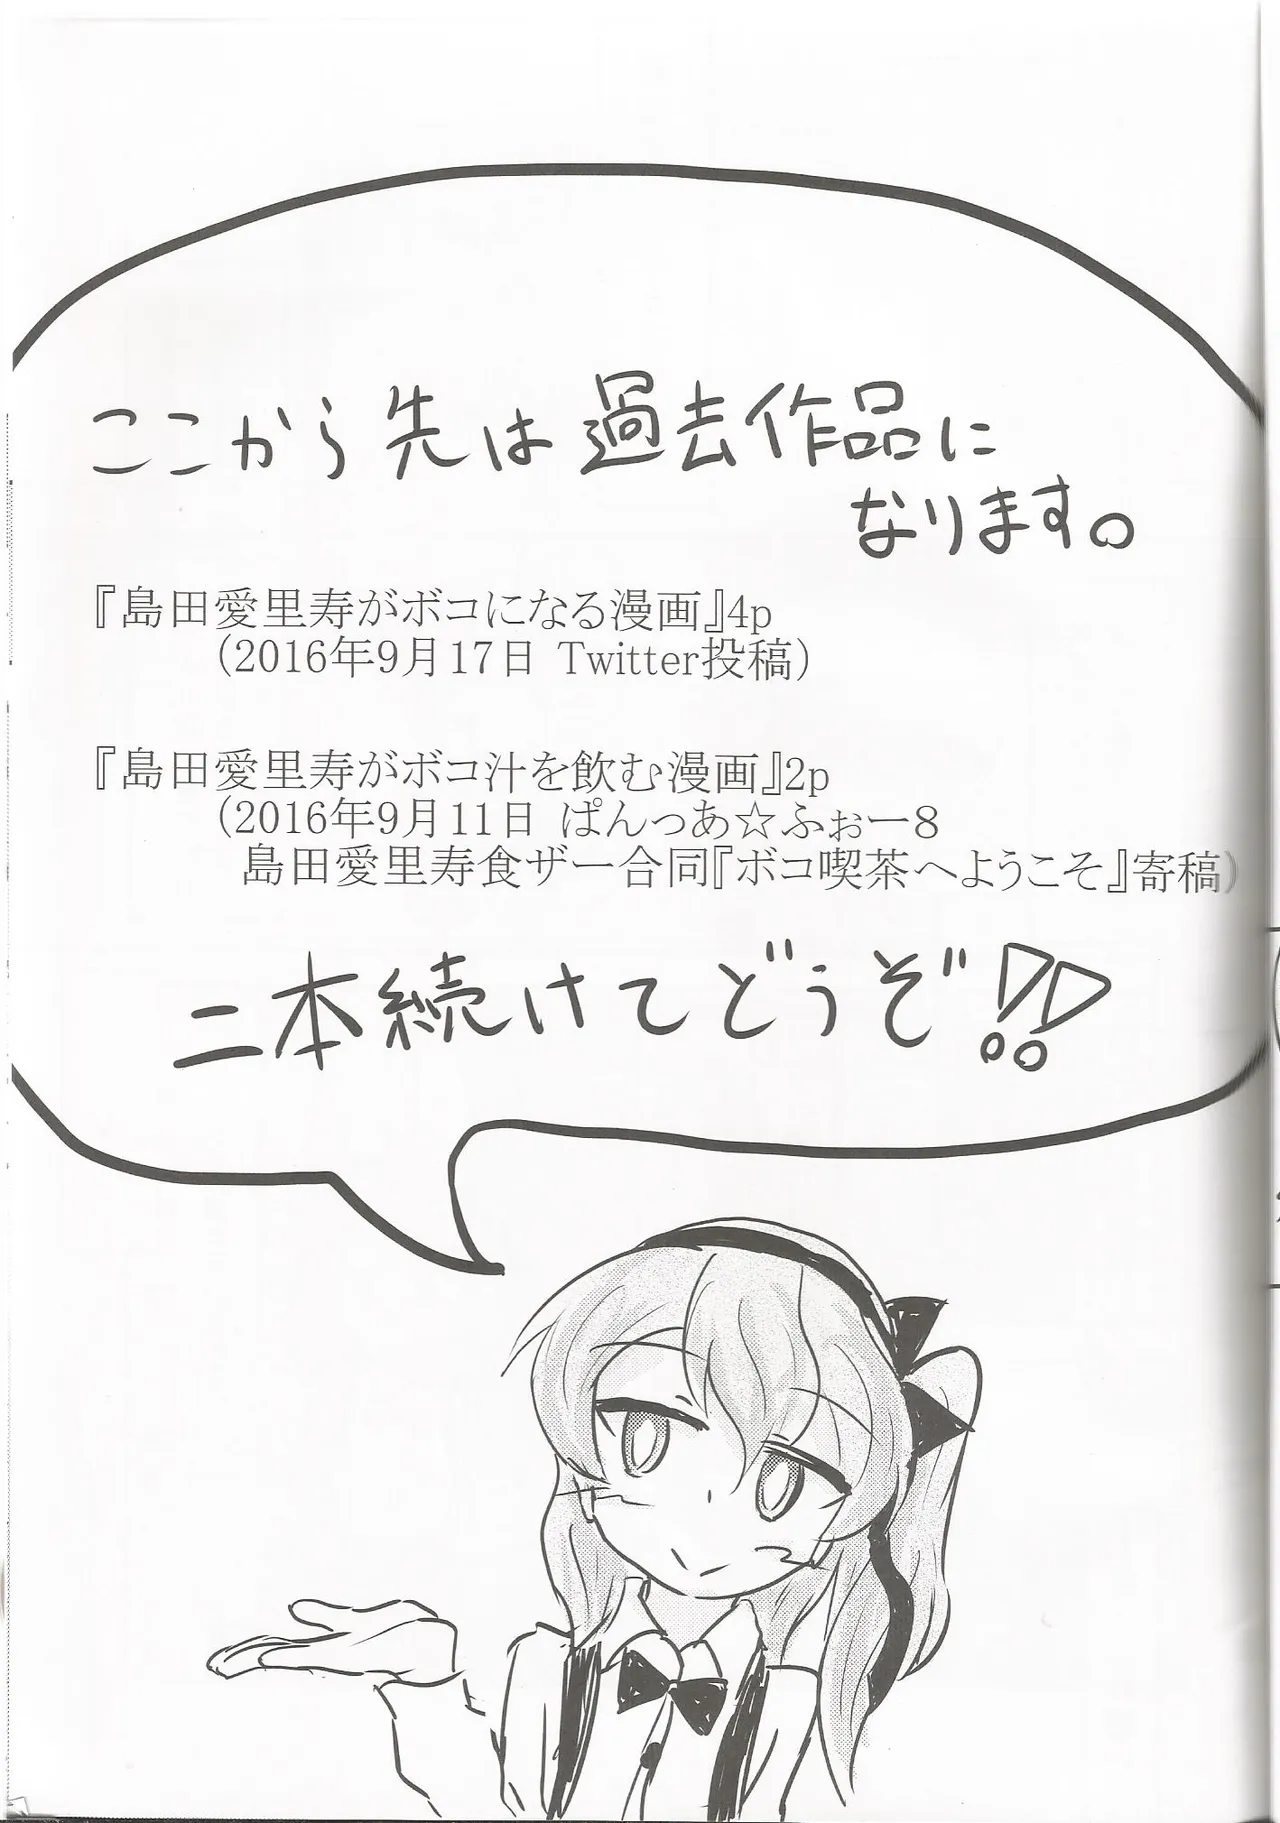 ここから先は過去作品に
なります。
『島田愛里寿がボコになる漫画』4p
(2016年9月17日 Twitter投稿)
『島田愛里寿がボコ汁を飲む漫画』2p
(2016年9月11日 ぱんっあ☆ふぉー8
島田愛里寿食ザー合同『ボコ喫茶へようこそ』寄稿)
二本続けてどうぞ!!